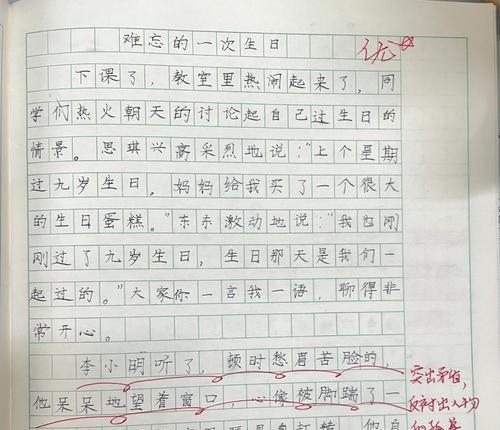 难忘的一次生日
优☆
下课了，教室里热闹起来了，同
学们热火朝天的讨论起自己过生日的
情景。思琪兴高采烈地说：“上个星期
过九岁生日，妈妈给我买了一个很大
的生日蛋糕。”东东激动地说：“我也刚
刚过了九岁生日，生日那天是我们一
起过的。”大家你一言我一语，聊得非
常开心。
李小明听了，顿时愁眉苦脸的，
他呆呆地望着窗口，心像被脚踹了一
突出矛盾，
反衬出人物